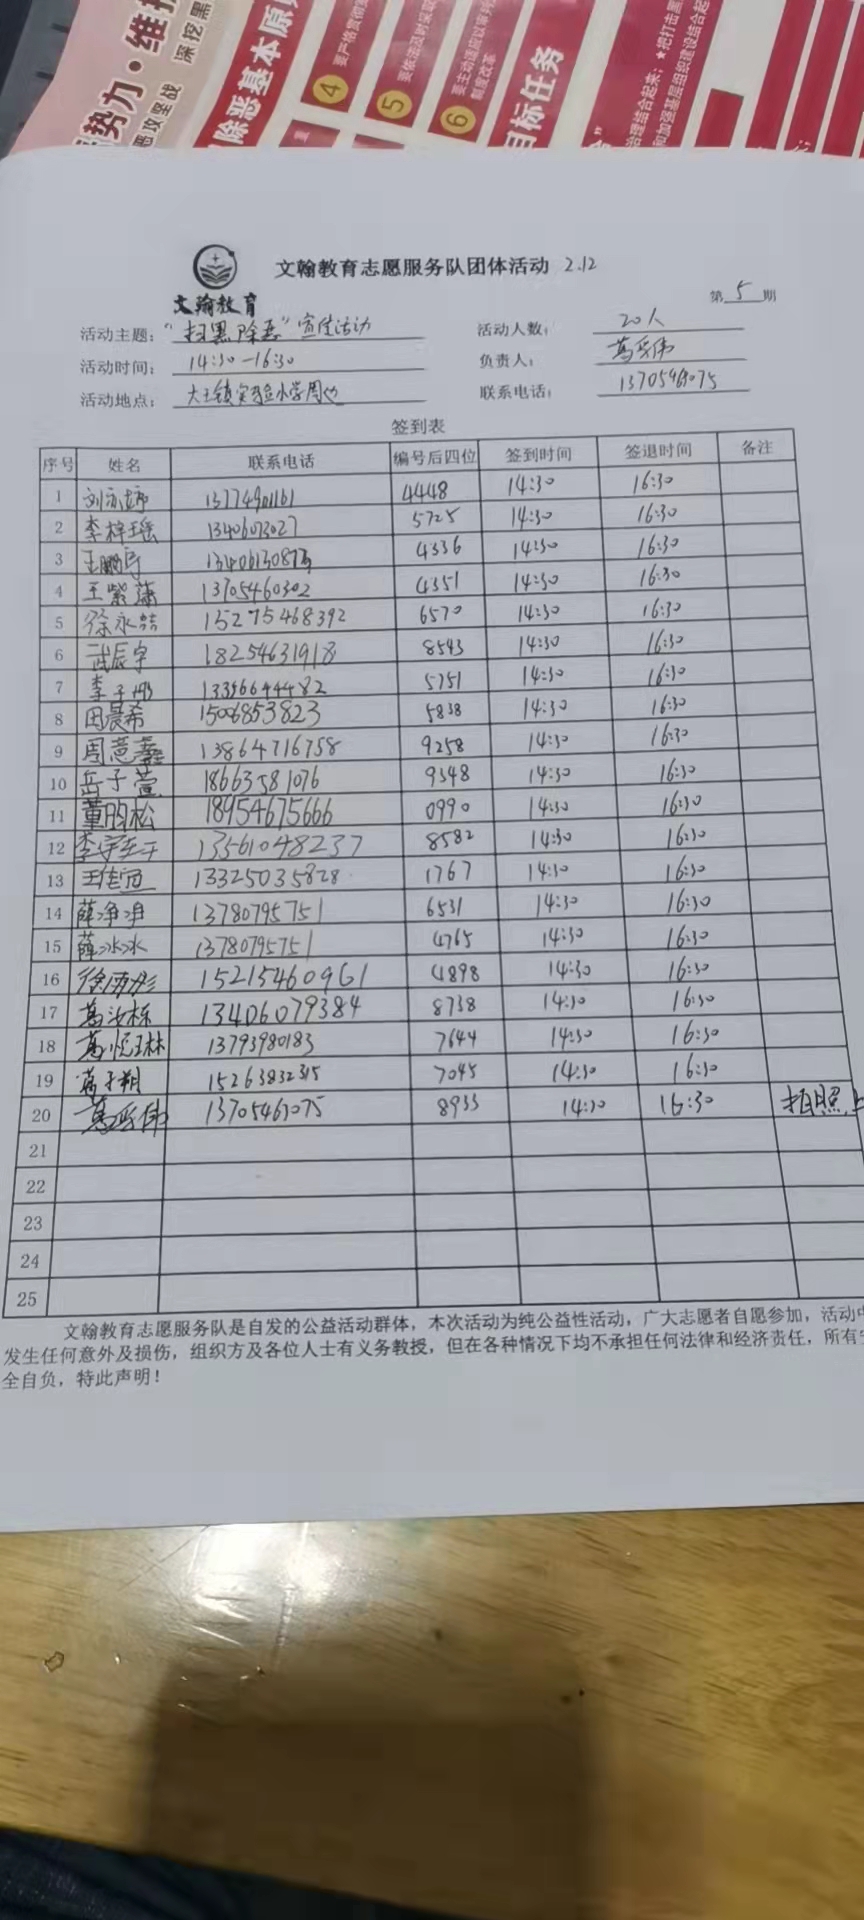 势力·维护
恶攻坚战 深挖黑
除恶基本原
④ 要严格贯彻
⑤
⑥ 要主动适应以审判
制度改革
目标任务
治理结合起来；★把打击黑
和加强基层组织建设结合起
文翰教育志愿服务队团体活动 2.12
文翰教育
第 5 期
活动主题： “扫黑除恶”宣传活动 活动人数： 20人
活动时间： 14:30-16:30 负责人： 葛
活动地点： 大王镇实验小学周边 联系电话：
签到表
序号 姓名 联系电话 编号后四位 签到时间 签退时间 备注
1 刘 13774901161 4448 14:30 16:30
2 李梓瑶 13406073027 5725 14:30 16:30
3 王鹏 4336 14:30 16:30
4 王紫潇 13705460302 4351 14:30 16:30
5 徐永皓 15275468392 6570 14:30 16:30
6 武辰宇 18254631918 8543 14:30 16:30
7 李子 13356644482 5751 14:30 16:30
8 田晨希 1506853823 5838 14:30 16:30
9 周意 13864716758 9258 14:30 16:30
10 岳子萱 18663581076 9348 14:30 16:30
11 董昀松 18954675666 0990 14:30 16:30
12 李宇 13561048237 8582 14:30 16:30
13 王佳 13325035828 1767 14:30 16:30
14 薛净净 13780795751 6531 14:30 16:30
15 薛冰冰 13780795751 4765 14:30 16:30
16 徐雨彤 15215460961 4898 14:30 16:30
17 葛汝栋 13406079384 8738 14:30 16:30
18 葛悦琳 13793980183 7644 14:30 16:30
19 子朔 15263832315 7045 14:30 16:30
20 葛 8933 14:30 16:30 拍照上
21
22
23
24
25
文翰教育志愿服务队是自发的公益活动群体，本次活动为纯公益性活动，广大志愿者自愿参加，活动中
发生任何意外及损伤，组织方及各位人士有义务教授，但在各种情况下均不承担任何法律和经济责任，所有安
全自负，特此声明！